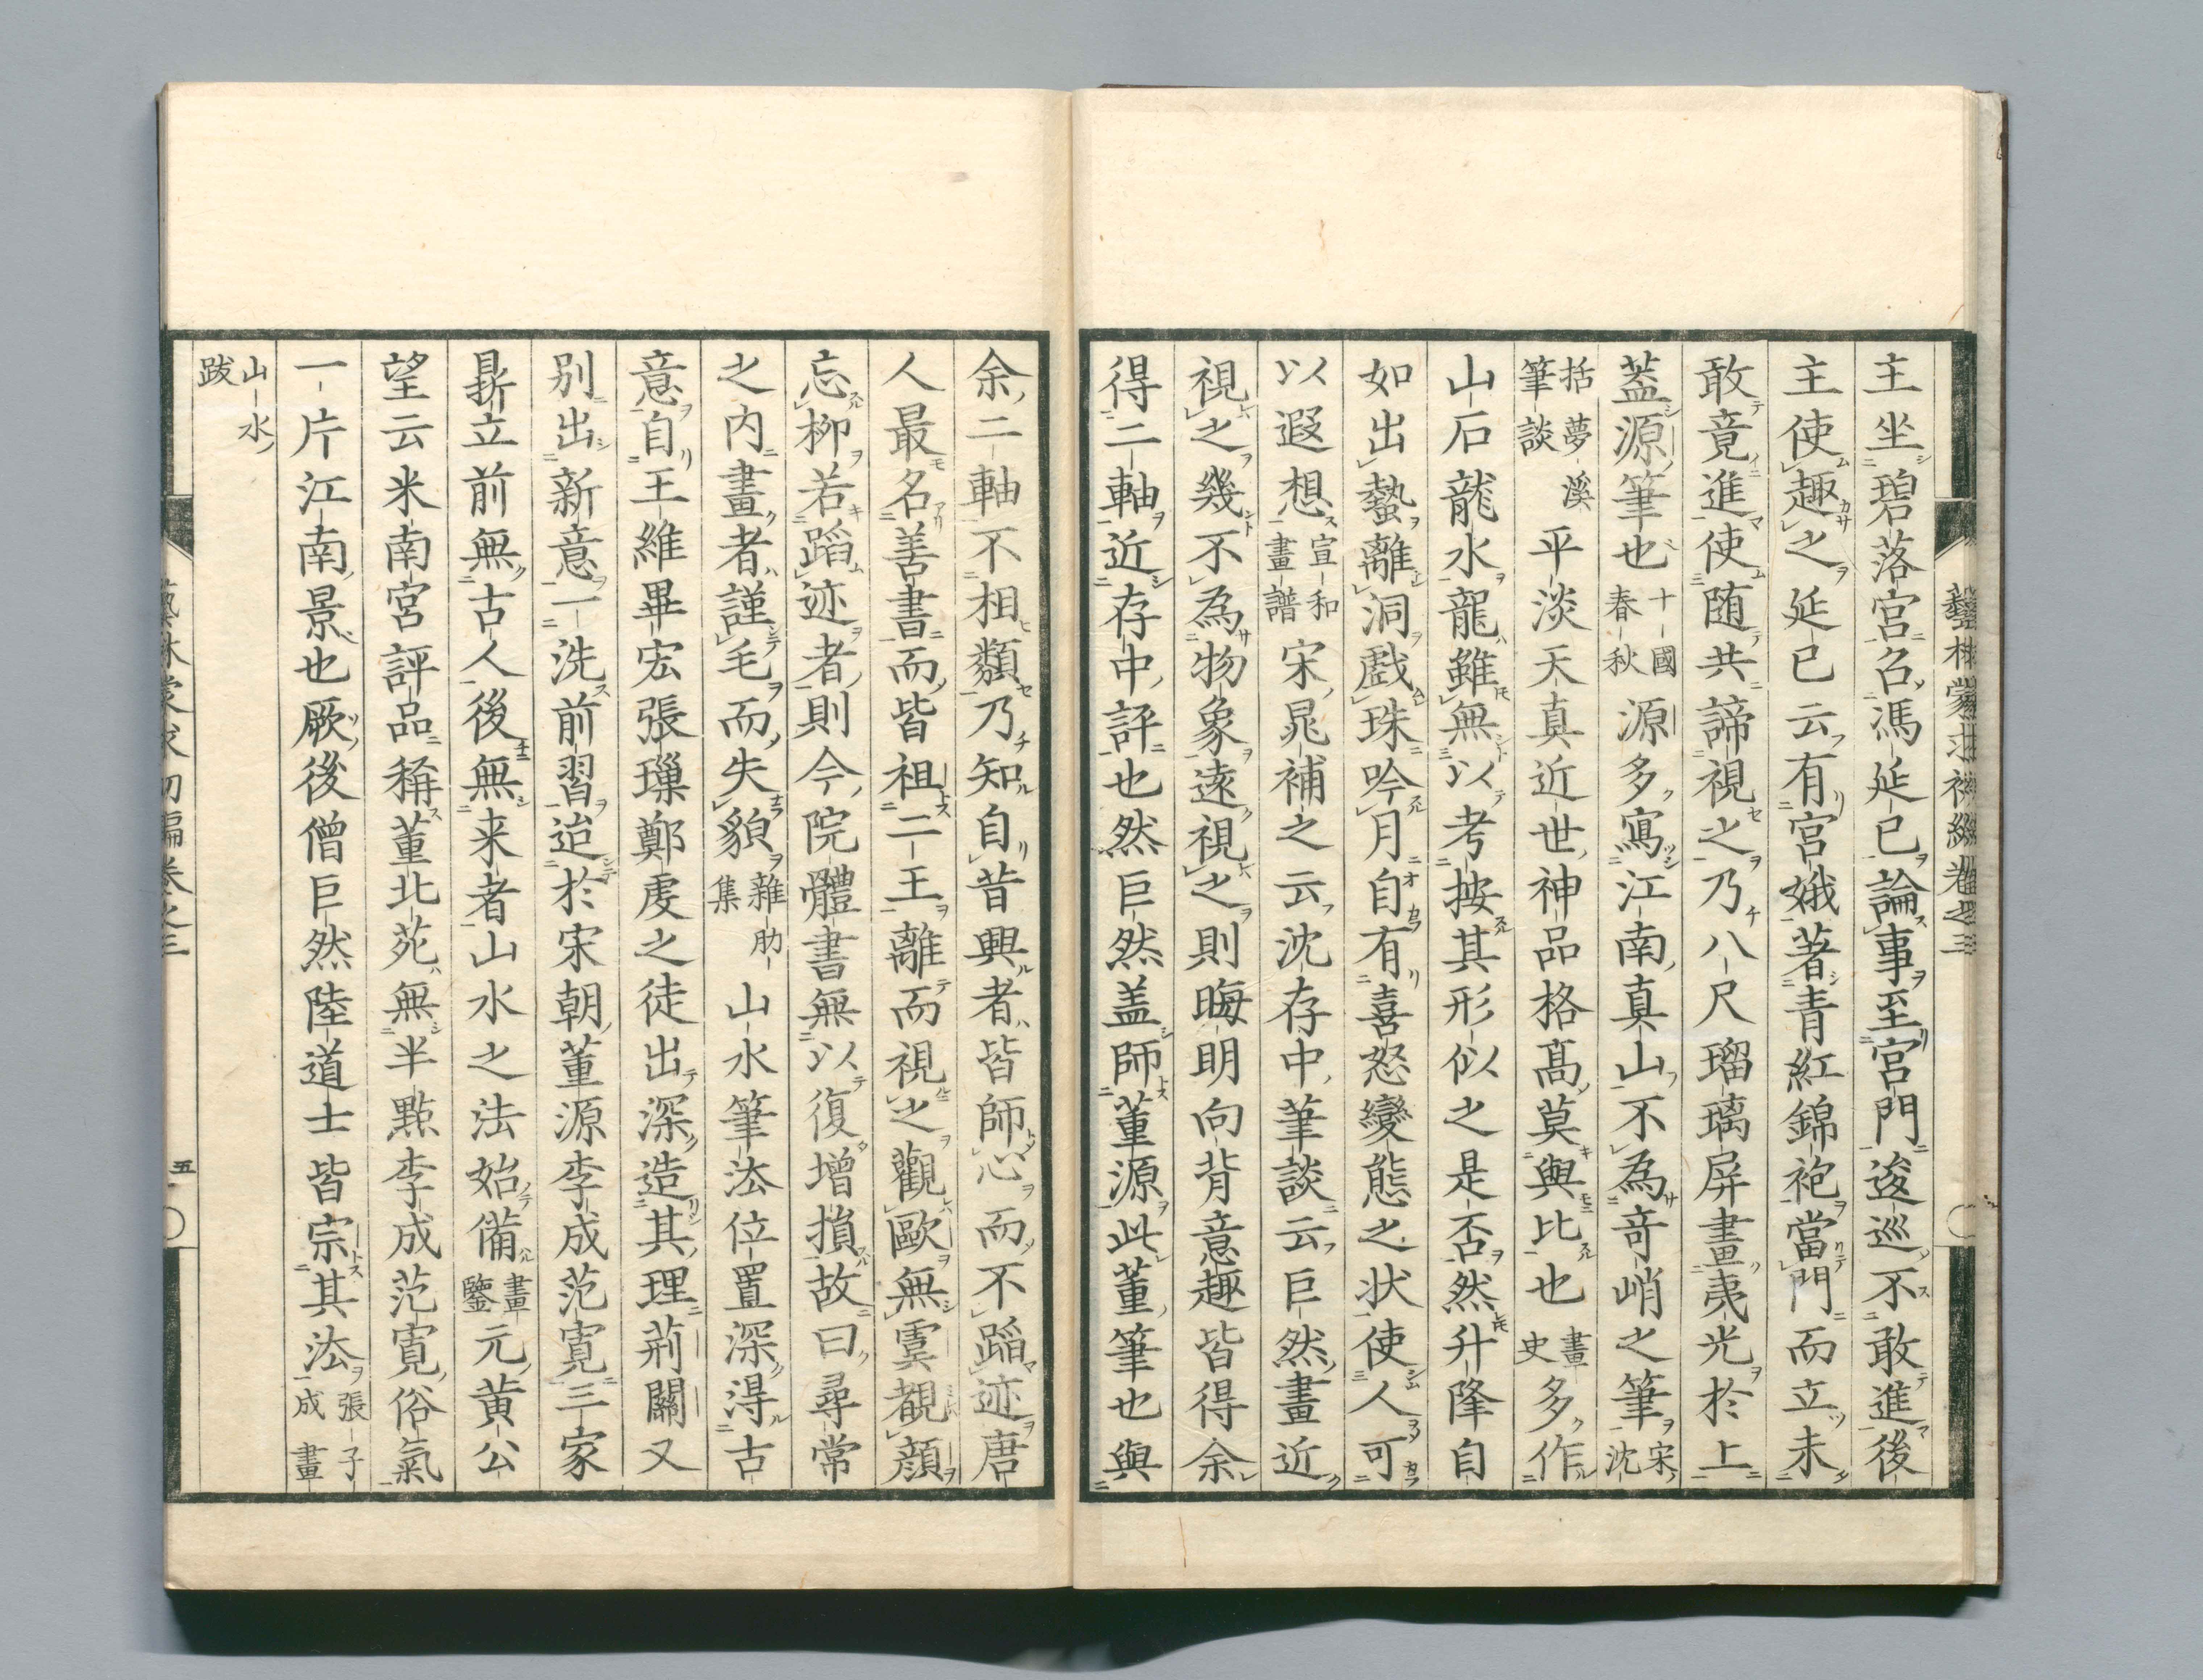 主坐碧落宮召馮延已論事至宮門逡巡不敢進後
主使趣之延已云有宮娥著青紅錦袍當門而立未
敢竟進使随共諦視之乃八尺瑠璃屏畫夷光於上
蓋源筆也十國春秋源多寫江南真山不為竒峭之筆宋沈
括夢溪筆談平淡天真近世神品格髙莫與比也畫史多作
山石龍水龍雖無以考按其形似之是否然升降自
如出蟄離洞戲珠吟月自有喜怒變態之状使人可
以遐想宣和畫譜宋晁補之云沈存中筆談云巨然畫近
視之幾不為物象遠視之則晦明向背意趣皆得余
得二軸近存中評也然巨然盖師董源此董筆也與
余二軸不相類乃知自昔興者皆師心而不蹈迹唐
人最名善書而皆祖二王離而視之觀歐無虞覩顔
忘柳若蹈迹者則今院體書無以復增損故曰尋常
之内畫者謹毛而失貌雜肋集山水筆法位置深得古
意自王維畢宏張璪鄭虔之徒出深造其理荊關又
別出新意一洗前習迨於宋朝董源李成范寛三家
鼎立前無古人後無来者山水之法始備畫鑒元黄公
望云米南宮評品稱董北苑無半㸃李成范寛俗氣
一片江南景也厥後僧巨然陸道士皆宗其法張子成畫
山水跋
藝林蒙求初編卷之三
五